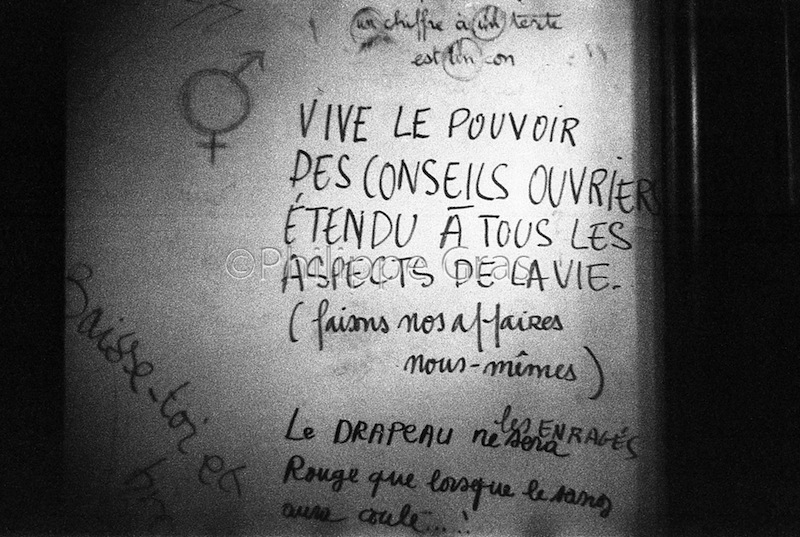 un chiffre à un texte
est un con
VIVE LE POUVOIR
DES CONSEILS OUVRIERS
ÉTENDU À TOUS LES
ASPECTS DE LA VIE.
(faisons nos affaires
nous-mêmes)
les ENRAGÉS
Le DRAPEAU ne sera
Rouge que lorsque le sang
aura coulé...!
Baisse-toi et
©Philippe Gras